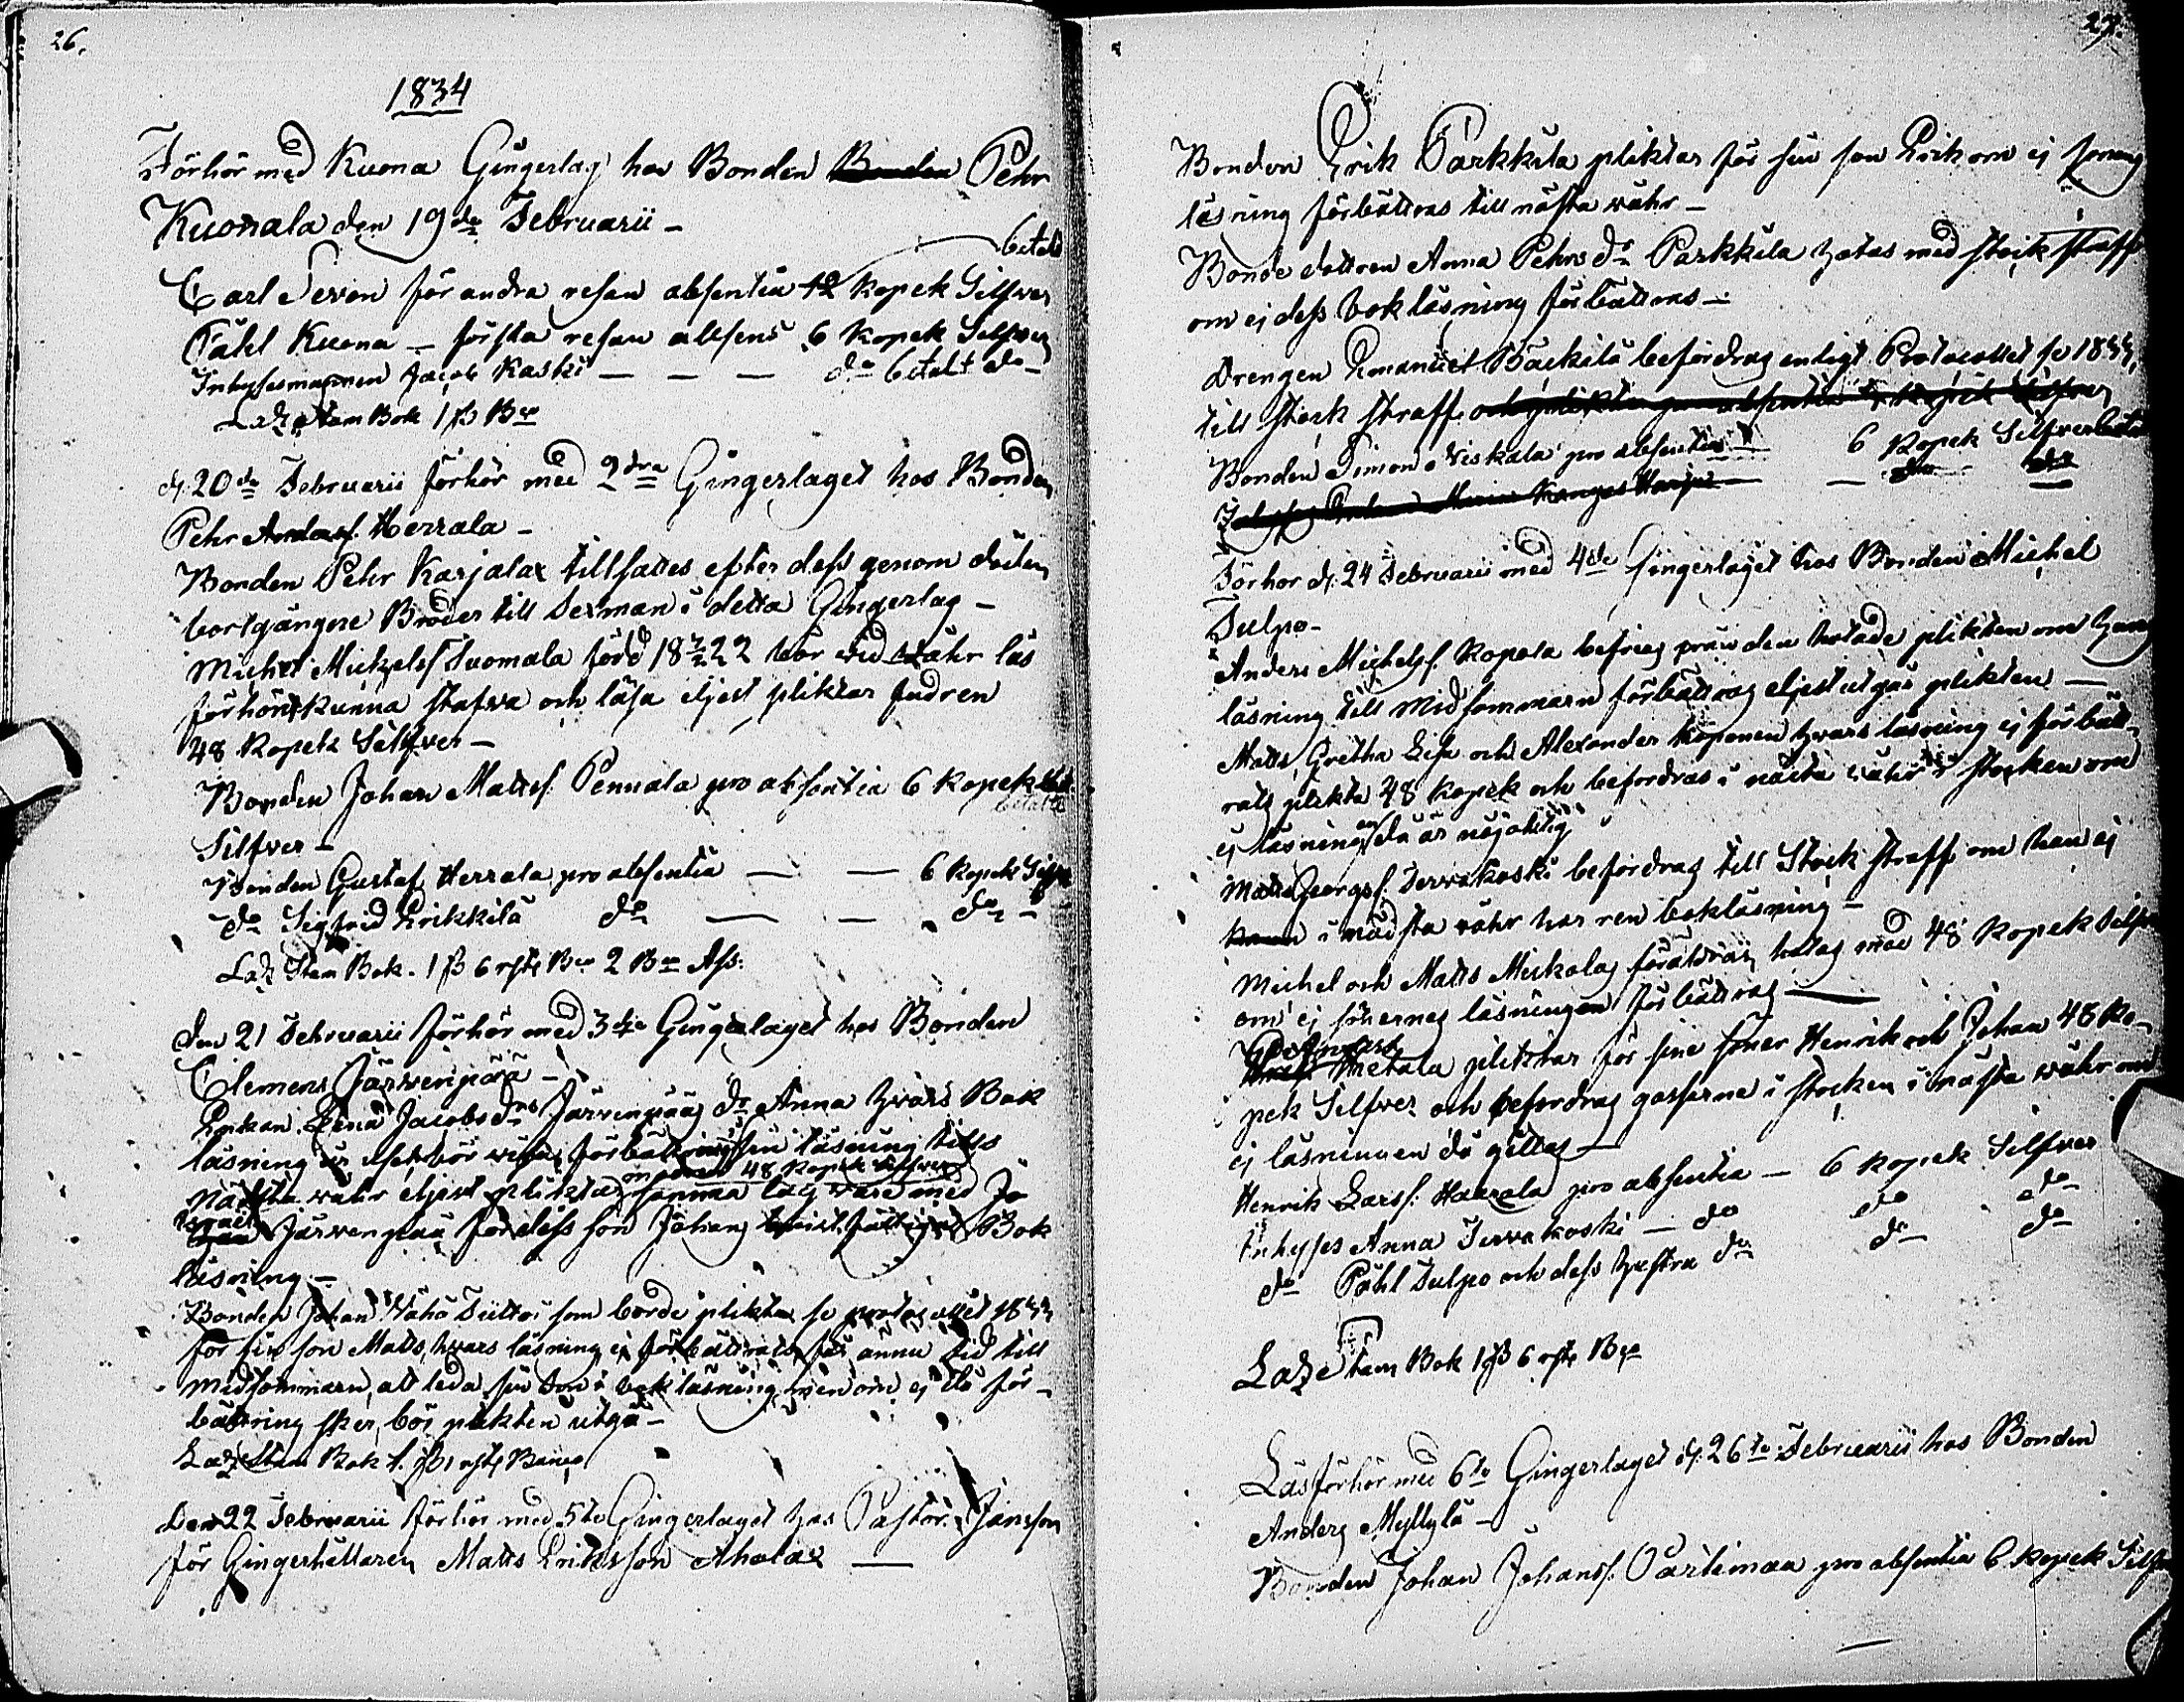 26.
1834
Förhör med Kuona Gingerlag hos Bonden Bonden Pehr
Kuonala den 19de Februarii -
betalt
Carl Sevon för andra resan absentia 12 kopek Silfver
Påhl Kuona - första resan absens 6 kopek Silfver
Inhysesmannen Jacob Kaski - - - do betalt do -
Stam Bok 1 ß Bco
d. 20de Februarii förhör med 2dra Gingerlaget hos Bonden
Pehr Andersf. Herrala -
Bonden Pehr Karjalax tillsattes efter dess genom döden
bortgångne Broder till Sexman i detta Gingerlag -
Michel Michelsf Tuomala född 18 22 bör vid wåhr läs
förhört kunna stafva och läsa eljest pliktar fadren
48 kopek Silfver -
Bonden Johan Mattsf. Pennala pro absentia 6 kopek
betalt
Silfver -
Bonden Gustaf Herrala pro absentia - - 6 kopek Silfv
do Sigfrid Erikkilä do - - do -
Stam Bok. 1 ß 6 rst Bco 2 Bco Ass:
den 21 Februarii förhör med 3dje Gingerlaget hos Bonden
Clemens Järvenpää -
Enkan Lena Jacobsdr Järvenpää dr Anna hvars Bok
läsning är bör visa förbättring i sin läsning till
om 48 kopek Silfver
nästa wåhr eljest pliktar samma lag vare med Jo
han Järvenpää för dess son Johans Bok
läsning -
Bonden Johan Nähä Tuitto som borde plikta se protocollet 1833
för sin son Matts, hvars läsning ej förbättrats får ännu tid till
midsommaren, att leda sin son i bokläsning, men om ej då för-
bättring sker, bör plikten utgå -
Stam Bok 1. ß rst Banco
Den 22 Februarii förhör med 5te Gingerlaget hos Pastor Jansson
för Gingerhållaren Matts Eriksson Aholax -
27.
Bonden Erik Parkkila pliktar för sin son Erik om ej
läsning förbättras till nästa wåhr -
Bonde dottren Anna Pehrsdr Parkkila hotas med stock straff
om ej dess bokläsning förbättras -
Drengen Emanuel Bäckilä befordras enligt Protocollet se 1833,
till stock straff och plikta pro absentia kopek Silfver
Bonden Simon Niskala pro absentia - 6 kopek Silfver betalt
Kangas Harju - - do do
Förhör d. 24 Februarii med 4de Gingerlaget hos Bonden Michel
Tulpo -
Anders Michelsf. Kopola befrias från den hotade plikten om hans
läsning till midsommaren förbättras eljest utgår plikten -
Matts, Gretha Lisa och Alexander Koponen hvars läsning ej förbätt-
rats plikta 48 kopek och befordras i nästa wåhr i stocken om
ej läsningen då är nöjaktig
Matts Georgsf. Tervakoski befordras till Stock straff om han ej
kunn i nästa wåhr har ren bokläsning -
Michel och Matts Miskalas föräldrar, hotas med 48 kopek Silfver
om ej sönernas läsningen förbättras -
Anders
Metala pliktar för sine söner Henrik och Johan 48 ko-
pek Silfver och befordras gossarne i stocken i nästa wåhr om
ej läsningen då gillas -
Henrik Larsf. Harrala pro absentia - 6 kopek Silfver
Inhyses Anna Tervakoski - do do do
do Påhl Tulpo och dess hustru do do do
Stam Bok 1 ß 6 rst Bco
Läsförhör med 6te Gingerlaget d. 26te Februarii hos Bonden
Anders Myllylä -
Bonden Johan Johansf. Partimaa pro absentia 6 kopek Silfver